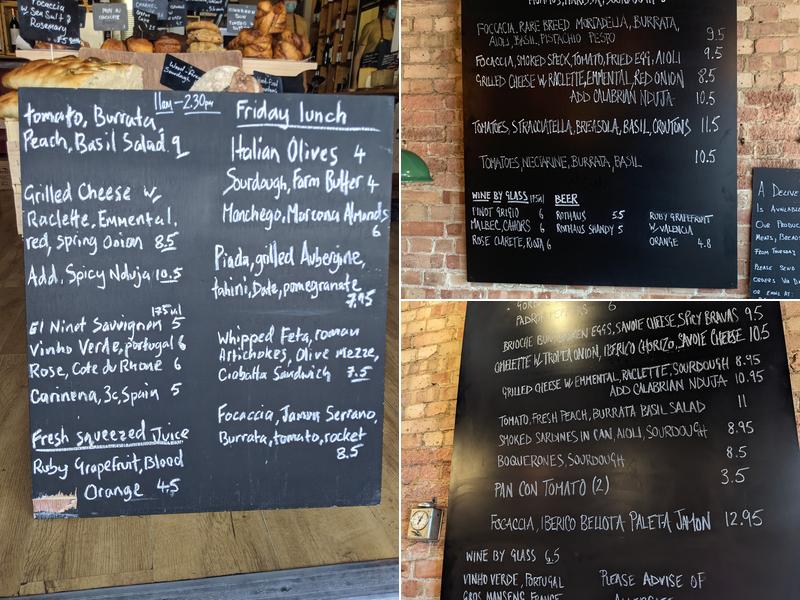 Focaccia
w Sea Salt &
Rosemary
11am-2.30pm
tomato, Burrata,
Peach, Basil Salad 9
Grilled Cheese w,
Raclette, Emmental,
red, Spring Onion 8.5
Add, Spicy Nduja 10.5
175ml
El Ninot Sauvignon 5
Vinho Verde, Portugal 6
Rose, Cote du Rhone 6
Carinena, 3c, Spain 5
Fresh squeezed Juice
Ruby Grapefruit, Blood
Orange 4.5
Friday lunch
Italian Olives 4
Sourdough, Farm Butter 4
Manchego, Marcona Almonds
6
Piada, grilled Aubergine,
tahini, Date, pomegranate
7.95
Whipped Feta, roman
Artichokes, Olive Mezze,
Ciabatta Sandwich 7.5
Focaccia, Jamon Serrano,
Burrata, tomato, rocket
8.5
FOCCACIA, RARE BREED MORTADELLA, BURRATA,
AIOLI, BASIL, PISTACHIO PESTO 9.5
FOCCACIA, SMOKED SPECK, TOMATO, FRIED EGG, AIOLI 9.5
GRILLED CHEESE W. RACLETTE, EMMENTAL, RED ONION 8.5
ADD CALABRIAN NDUJA 10.5
TOMATOES, STRACCIATELLA, BREASOLA, BASIL, CROUTONS 11.5
TOMATOES, NECTARINE, BURRATA, BASIL 10.5
WINE BY GLASS 175ml
PINOT GRIGIO 6
MALBEC, CAHORS 6
ROSE CLARETE, RIOJA 6
BEER
ROTHAUS 5.5
ROTHAUS SHANDY 5
RUBY GRAPEFRUIT
W. VALENCIA
ORANGE 4.8
A DELIVE
IS AVAILAB
OUR PRODUC
MEATS, BREADS
FROM THURSDAY
PLEASE SEND
ORDERS VIA D
OR EMAIL AT
6
BRIOCHE BUN, BROKEN EGGS, SAVOIE CHEESE, SPICY BRAVAS 9.5
OMELETTE W. TROPEA ONION, IBERICO CHORIZO, SAVOIE CHEESE 10.5
GRILLED CHEESE W EMMENTAL, RACLETTE, SOURDOUGH 8.95
ADD CALABRIAN NDUJA 10.95
TOMATO, FRESH PEACH, BURRATA BASIL SALAD 11
SMOKED SARDINES IN CAN, AIOLI, SOURDOUGH 8.95
BOQUERONES, SOURDOUGH 8.5
PAN CON TOMATO (2) 3.5
FOCACCIA, IBERICO BELLOTA PALETA JAMON 12.95
WINE BY GLASS 6.5
VINHO VERDE, PORTUGAL
GROS MANSENG, FRANCE
PLEASE ADVISE OF